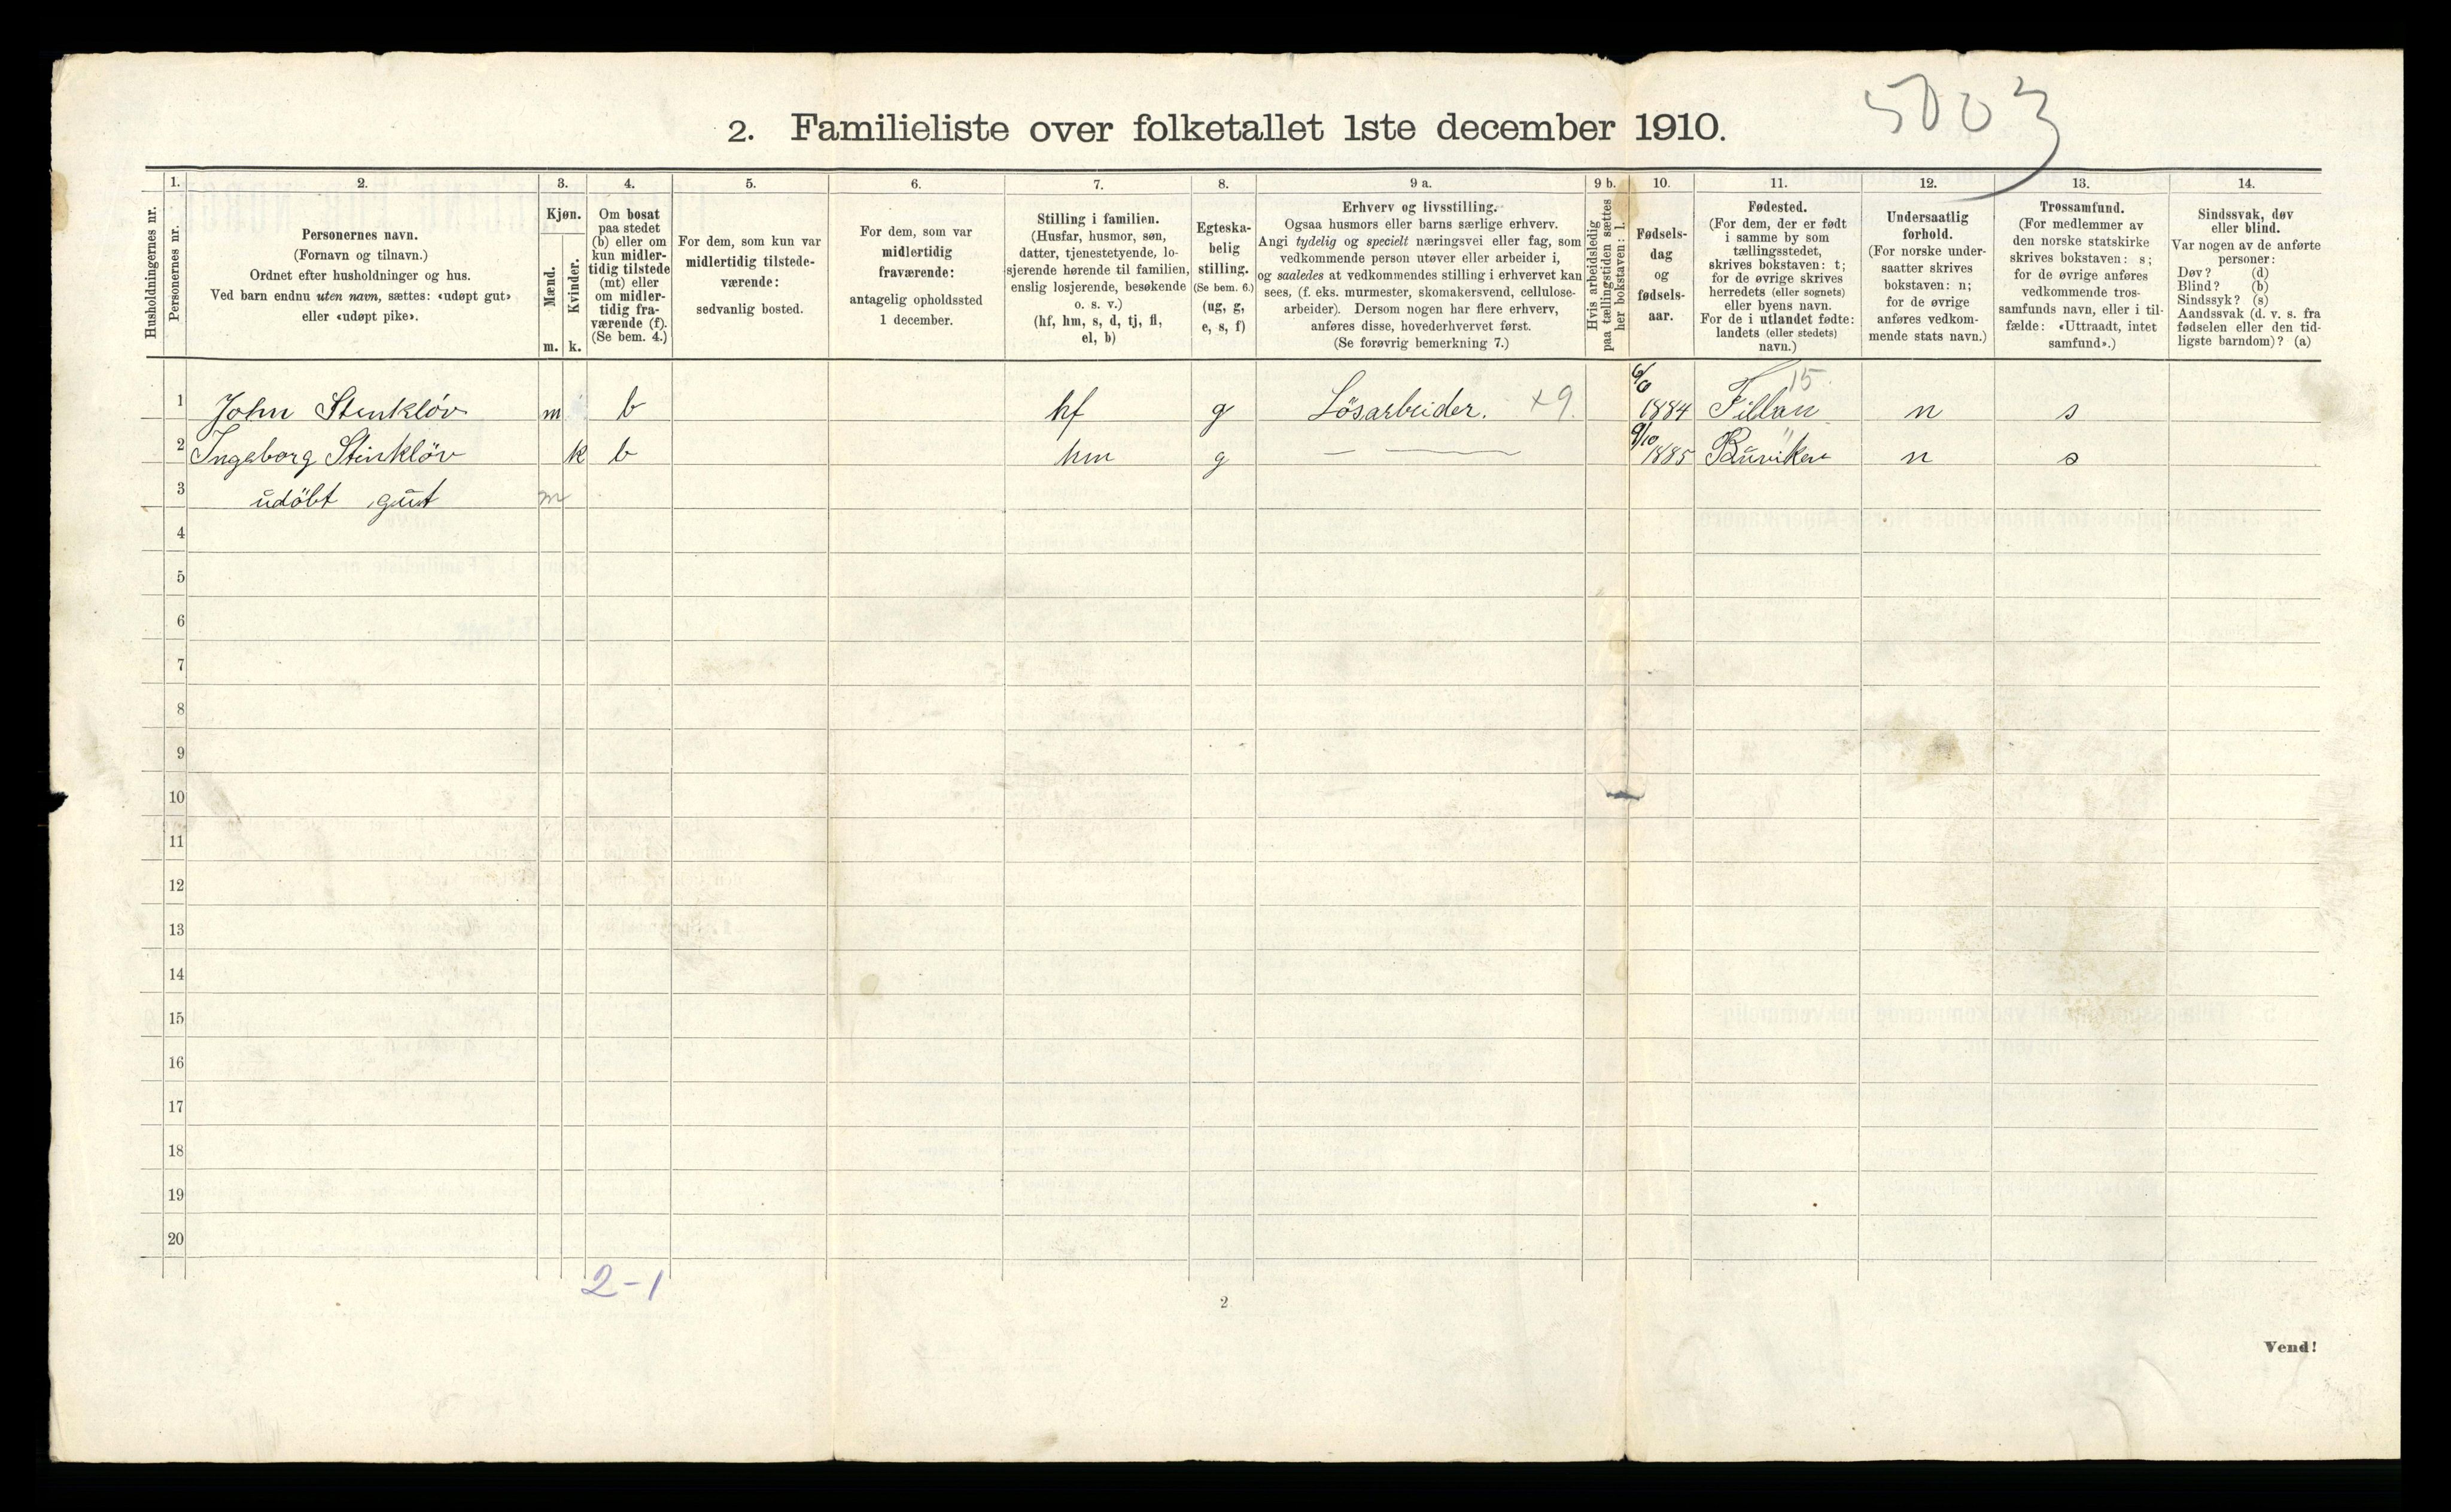 5003
2. Familieliste over folketallet 1ste december 1910.
1. 2. 3. 4. 5. 6. 7. 8. 9 a. 9 b. 10. 11. 12. 13. 14.
Husholdningernes nr.
Personernes nr.
Personernes navn.
(Fornavn og tilnavn.)
Ordnet efter husholdninger og hus.
Ved barn endnu uten navn, sættes: «udøpt gut»
eller «udøpt pike».
Kjøn.
Mænd.
Kvinder.
m. k.
Om bosat
paa stedet
(b) eller om
kun midler-
tidig tilstede
(mt) eller
om midler-
tidig fra-
værende (f).
(Se bem. 4.)
For dem, som kun var
midlertidig tilstede-
værende:
sedvanlig bosted.
For dem, som var
midlertidig
fraværende:
antagelig opholdssted
1 december.
Stilling i familien.
(Husfar, husmor, søn,
datter, tjenestetyende, lo-
sjerende hørende til familien,
enslig losjerende, besøkende
o. s. v.)
(hf, hm, s, d, tj, fl,
el, b)
Egteska-
belig
stilling.
(Se bem. 6.)
(ug, g,
e, s, f)
Erhverv og livsstilling.
Ogsaa husmors eller barns særlige erhverv.
Angi tydelig og specielt næringsvei eller fag, som
vedkommende person utøver eller arbeider i,
og saaledes at vedkommendes stilling i erhvervet kan
sees, (f. eks. murmester, skomakersvend, cellulose-
arbeider). Dersom nogen har flere erhverv,
anføres disse, hovederhvervet først.
(Se forøvrig bemerkning 7.)
Hvis arbeidsledig
paa tællingstiden sættes
her bokstaven: l.
Fødsels-
dag
og
fødsels-
aar.
Fødested.
(For dem, der er født
i samme by som
tællingsstedet,
skrives bokstaven: t;
for de øvrige skrives
herredets (eller sognets)
eller byens navn.
For de i utlandet fødte:
landets (eller stedets)
navn.)
Undersaatlig
forhold.
(For norske under-
saatter skrives
bokstaven: n;
for de øvrige
anføres vedkom-
mende stats navn.)
Trossamfund.
(For medlemmer av
den norske statskirke
skrives bokstaven: s;
for de øvrige anføres
vedkommende tros-
samfunds navn, eller i til-
fælde: «Uttraadt, intet
samfund».)
Sindssvak, døv
eller blind.
Var nogen av de anførte
personer:
Døv? (d)
Blind? (b)
Sindssyk? (s)
Aandssvak (d. v. s. fra
fødselen eller den tid-
ligste barndom)? (a)
1 John Stenkløv m b hf g Lösarbeider. x9. 1884 Fillan 15. n s
2 Ingeborg Stenkløv k b hm g — — 9/10 1885 Buviken n s
3 udöbt gut m
4
5
6
7
8
9
10
11
12
13
14
15
16
17
18
19
20
2-1
2
Vend!